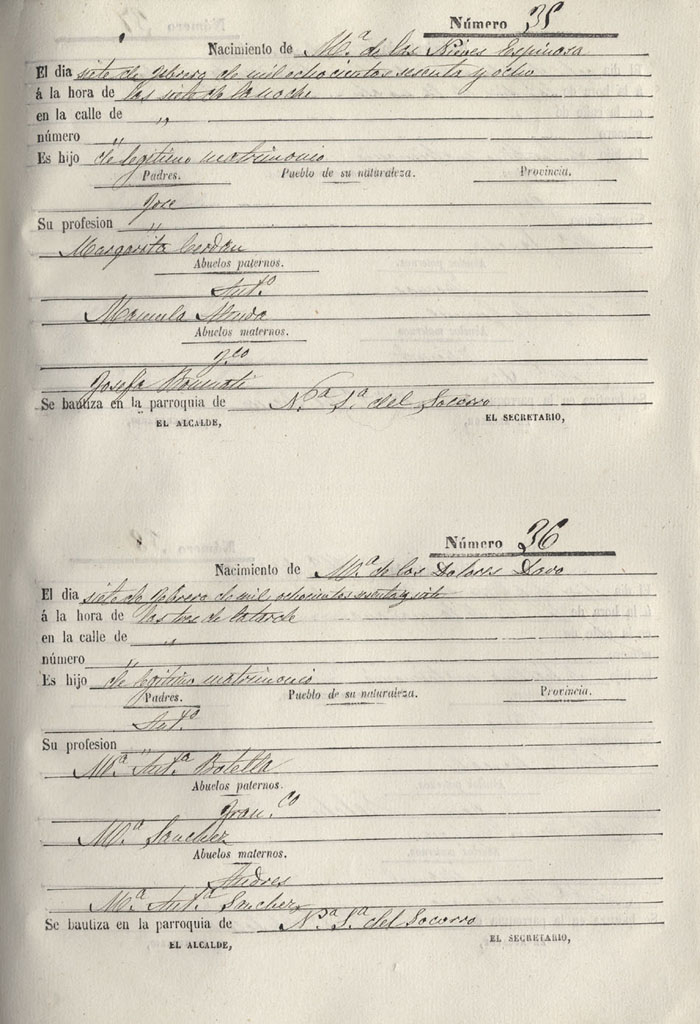 Número 35
Nacimiento de Mª de las Nieves Espinosa
El dia siete de febrero de mil ochocientos sesenta y ocho
á la hora de las siete de la noche
en la calle de "
número "
Es hijo de legitimo matrimonio
Padres. Pueblo de su naturaleza. Provincia.
Jose
Su profesion "
Margarita Cerdan
Abuelos paternos.
Antº
Manuela
Abuelos maternos.
Josefa
Se bautiza en la parroquia de Nª Sª del Socorro
EL ALCALDE, EL SECRETARIO,
Número 36
Nacimiento de Mª de los Dolores Davo
El dia siete de febrero de mil ochocientos sesenta y
á la hora de las tres de la tarde
en la calle de "
número "
Es hijo de legitimo matrimonio
Padres. Pueblo de su naturaleza. Provincia.
Antº
Su profesion "
Mª Antª Botella
Abuelos paternos.
Franco
Mª Sanchez
Abuelos maternos.
Andres
Mª Antª Sanchez
Se bautiza en la parroquia de Nª Sª del Socorro
EL ALCALDE, EL SECRETARIO,